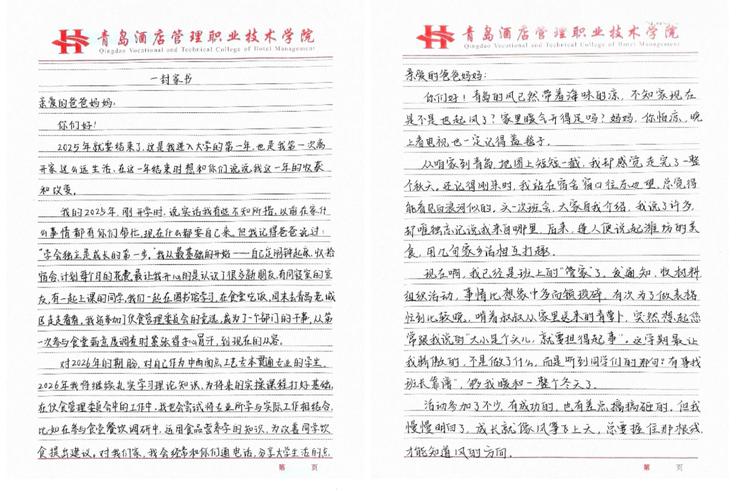 青岛酒店管理职业技术学院
Qingdao Vocational and Technical College of Hotel Management
一封家书
亲爱的爸爸妈妈:
你们好!
2025年就要结束了,这是我进入大学的第一年,也是我第一次离
开家这么远生活,在这一年结束时想和你们说说我这一年的收获
和改变。
我的2025年,刚开学时,说实话我有些不知所措,以前在家什
么事情都有你们帮忙,现在什么都要自己来,但我记得爸爸说过:
“学会独立是成长的第一步。”我从最基础的开始——自己定闹钟起床,收拾
宿舍,计划每个月的花费,最让我开心的是认识了很多新朋友,有同寝室的室
友,有一起上课的同学,我们一起在图书馆学习,在食堂吃饭,周末去青岛老城
区走走看看,我还参加了伙食管理委员会的竞选,成为了一个部门的干事,从第
一次参与食堂满意度调查时紧张得手心冒汗,到现在的从容。
对2026年的期盼,对自己作为中西面点工艺专本贯通专业的学生,
2026年我将继续扎实学习理论知识,为将来的实操课程打好基础,
在伙食管理委员会中的工作中,我也会尝试将专业所学与实际工作相结合,
比如在参与食堂餐饮调研中,运用食品营养学的知识,为改善同学饮
食提出建议。对我们家,我会经常和你们通电话,分享大学生活的点
第 页
青岛酒店管理职业技术学院
Qingdao Vocational and Technical College of Hotel Management
亲爱的爸爸妈妈:
你们好!青岛的风已然带着海味的凉,不知家现在
是不是也起风了?家里暖气开得足吗?妈妈,你怕凉,晚
上看电视也一定记得盖毯子。
从咱家到青岛,地图上短短一截,我却感觉走完了一整
个秋天。还记得刚来时,我站在宿舍窗口往东边望,总觉得
能看见白浪河似的。头一次班会,大家自我介绍,我说了许多,
却唯独忘记说我来自哪里,后来,逢人便说起潍坊的美
食,用几句家乡话相互打趣。
现在啊,我已经是班上的“管家”了,发通知,收材料,
组织活动,事情比想象中多而琐碎。有次为了做表格
忙到比较晚,啃着叔叔从家里送来的青萝卜,突然想起您
常跟我说的“大小是个官儿,就要担得起事”。这学期最让
我骄傲的,不是做了什么,而是听到同学们的那句:“有事找
班长靠谱”,够我暖和一整个冬天了。
活动参加了不少,有成功的,也有差点搞砸的,但我
慢慢明白了,成长就像风筝上天,总要拽住那根线,
才能知道风的方向。
第 页